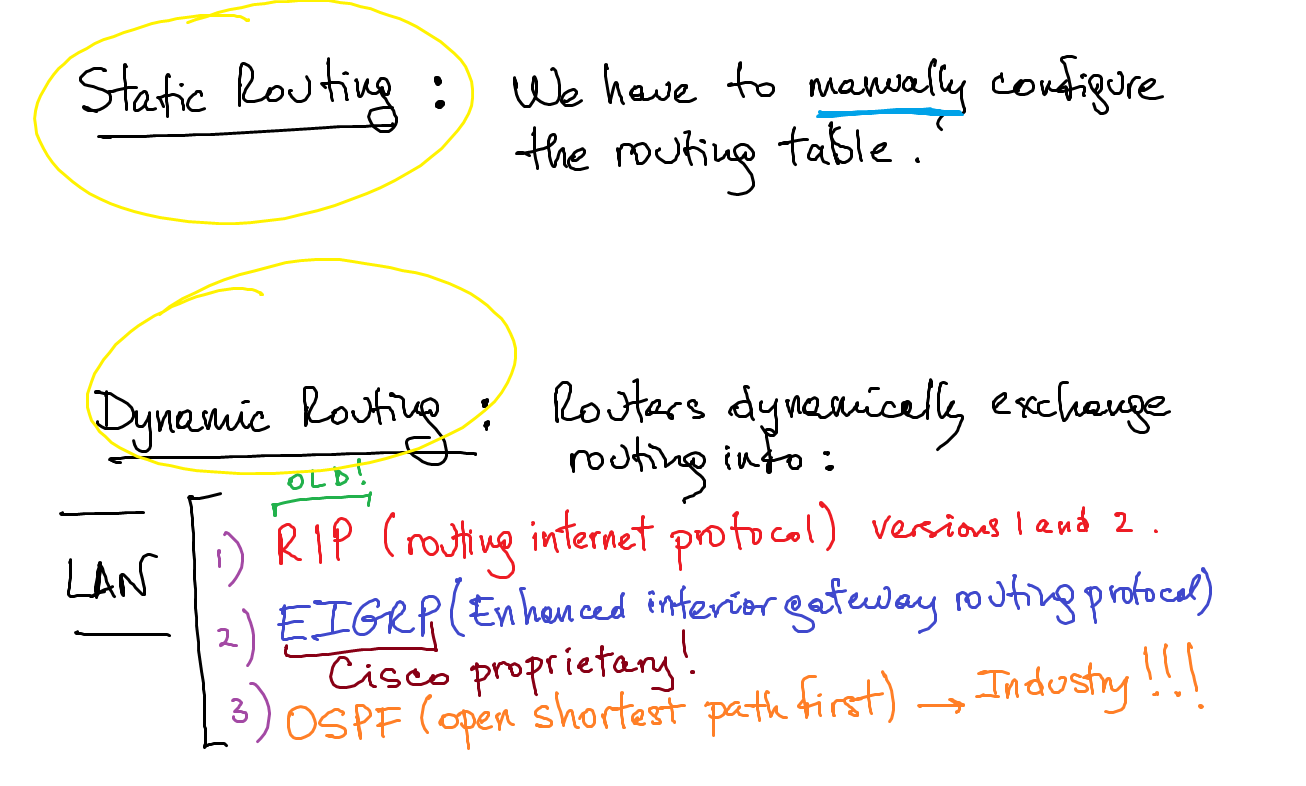 Static Routing : We have to manually configure
the routing table.
Dynamic Routing : Routers dynamically exchange
routing info :
OLD!
LAN
1) RIP (routing internet protocol) versions 1 and 2.
2) EIGRP (Enhanced interior gateway routing protocol)
Cisco proprietary!
3) OSPF (open shortest path first) → Industry!!!